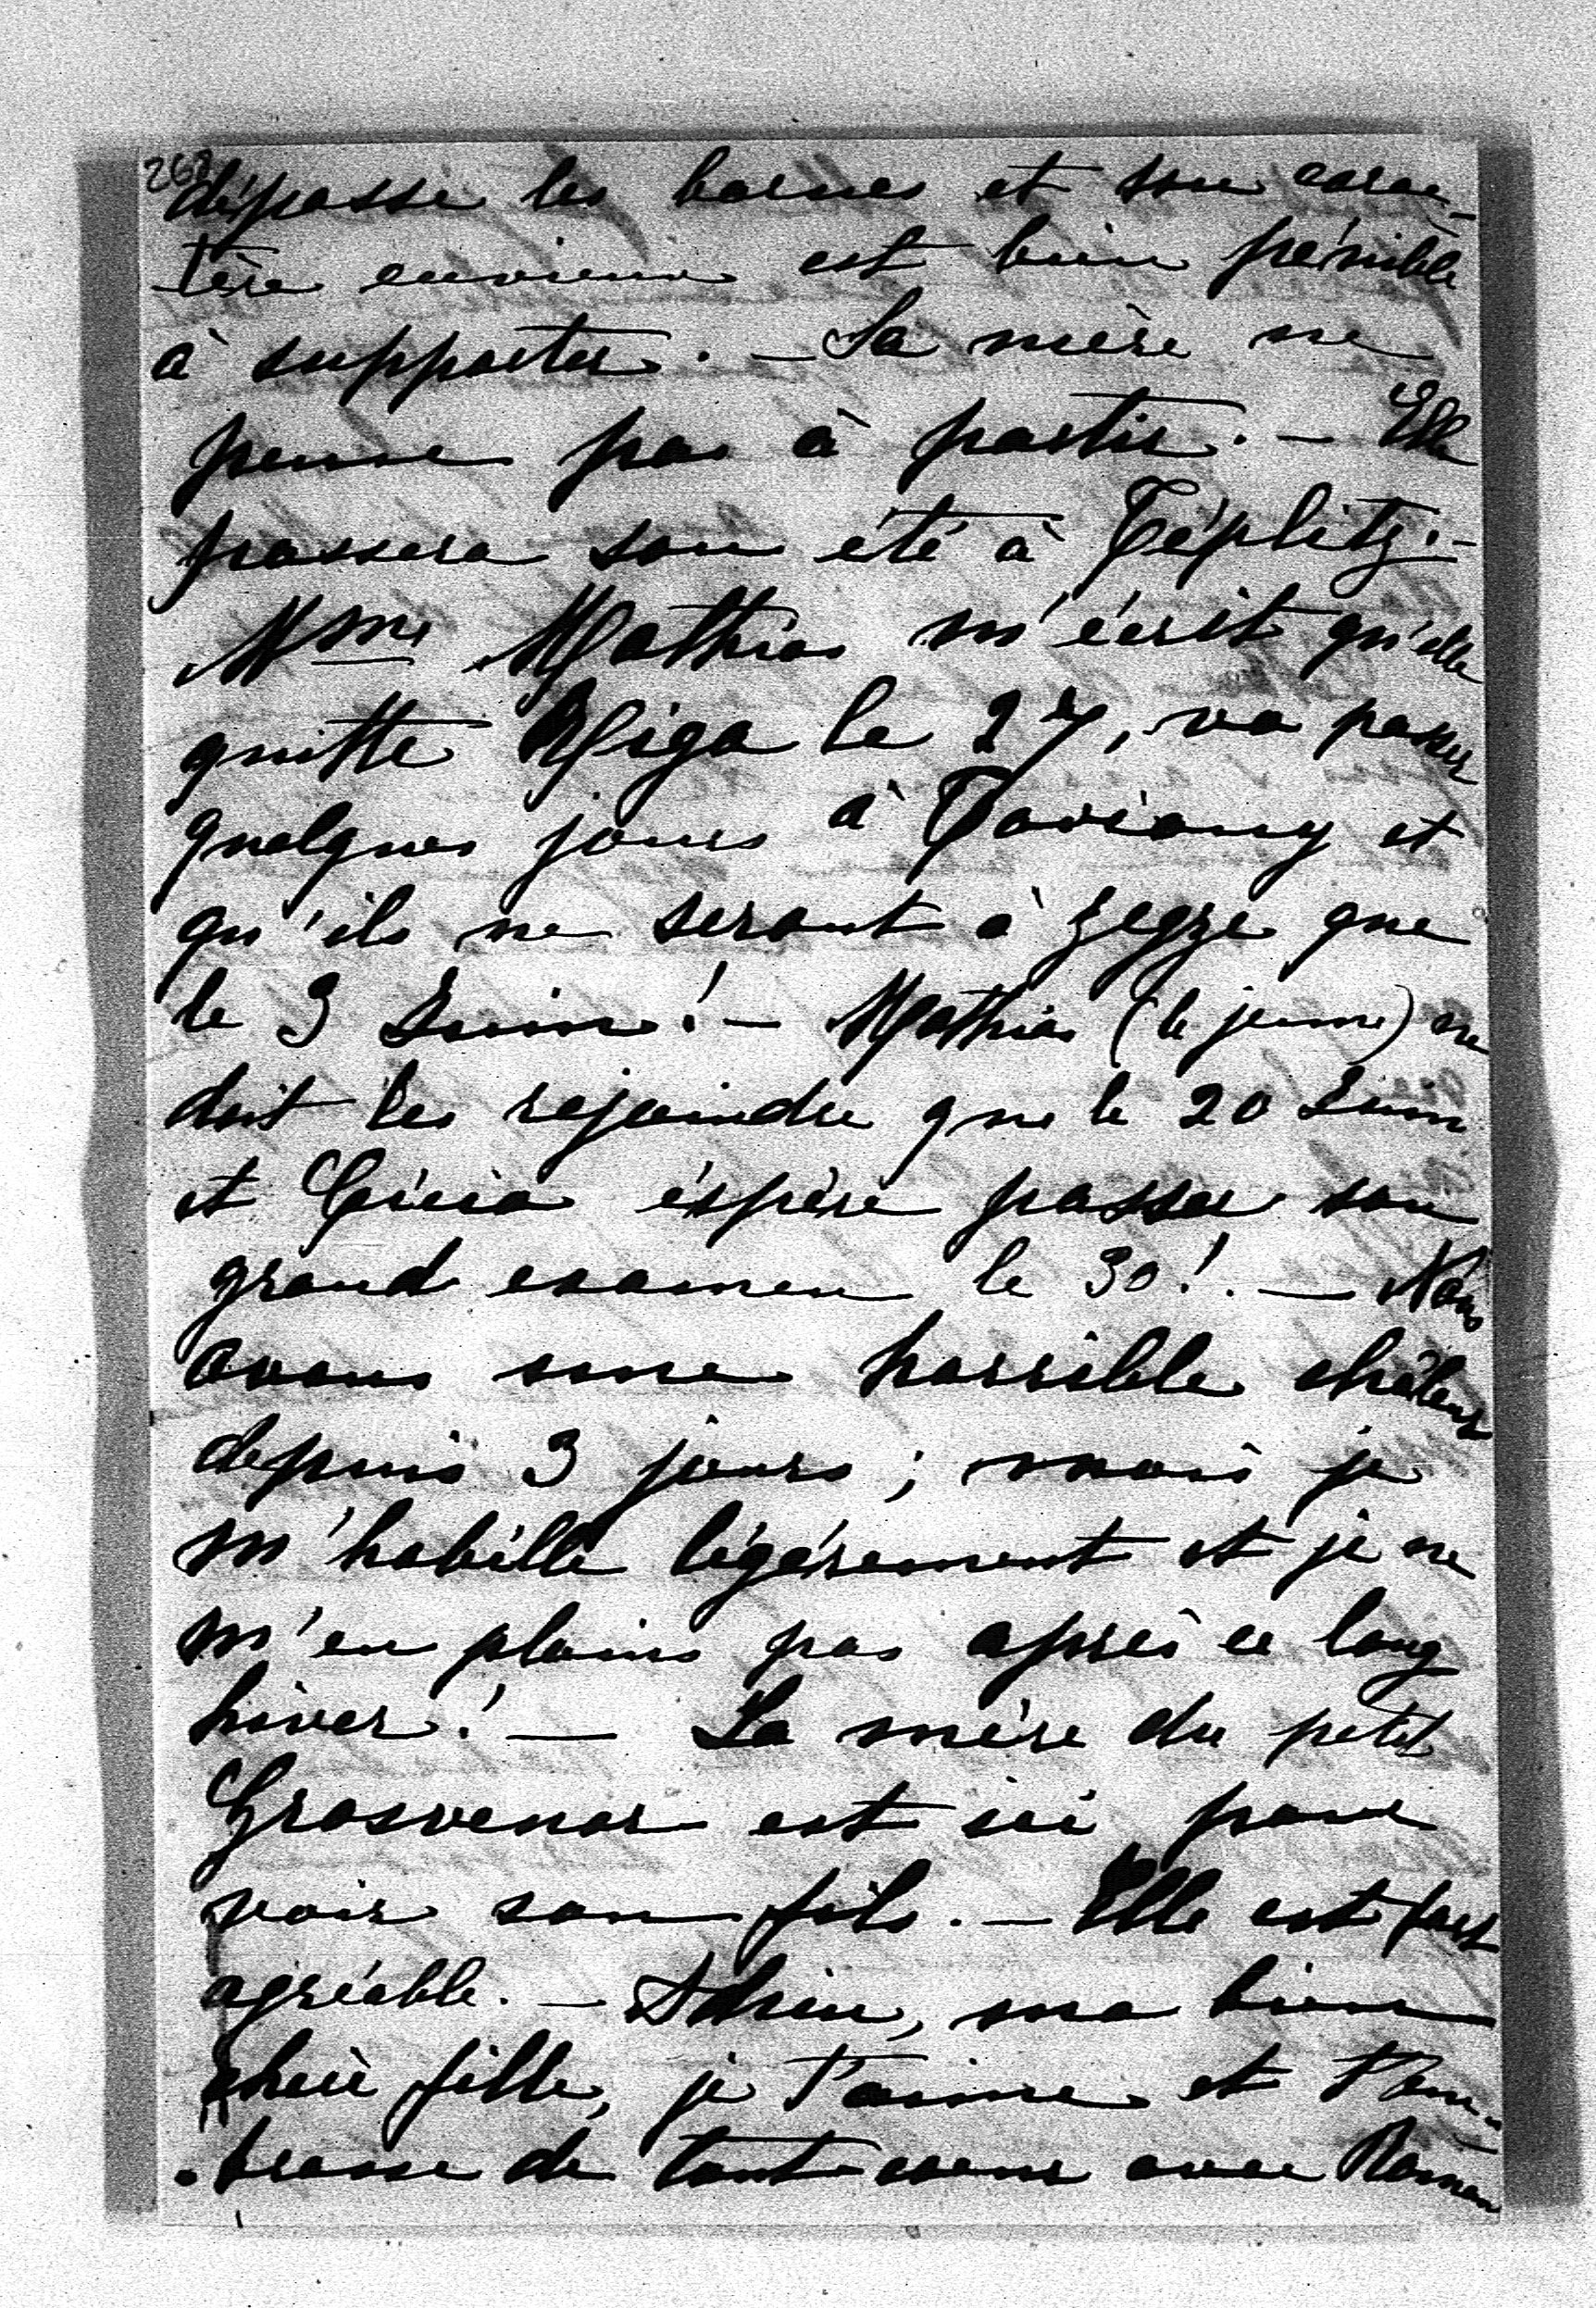 268
dépasse les bornes et son carac-
tère envieux est bien pénible
à supporter. – Sa mère ne
pense pas à partir. – Elle
passera son été à Téplitz. –
Mme Mathias m'écrit qu'elle
quitte Riga le 27, va passer
quelques jours à Taviany et
qu'ils ne seront à Zegze que
le 3 Juin! – Mathias (le jeune) ne
doit les rejoindre que le 20 Juin
et espère passer son
grand examen le 30! – Nous
avons une horrible chaleur
depuis 3 jours; mais je
m'habille légèrement et je ne
m'en plains pas après ce long
hiver! – La mère du petit
Grosvenor est ici pour
voir son fils. – Elle est fort
agréable. – Adieu, ma bien
chère fille, je t'aime et t'em-
brasse de tout coeur avec Roman